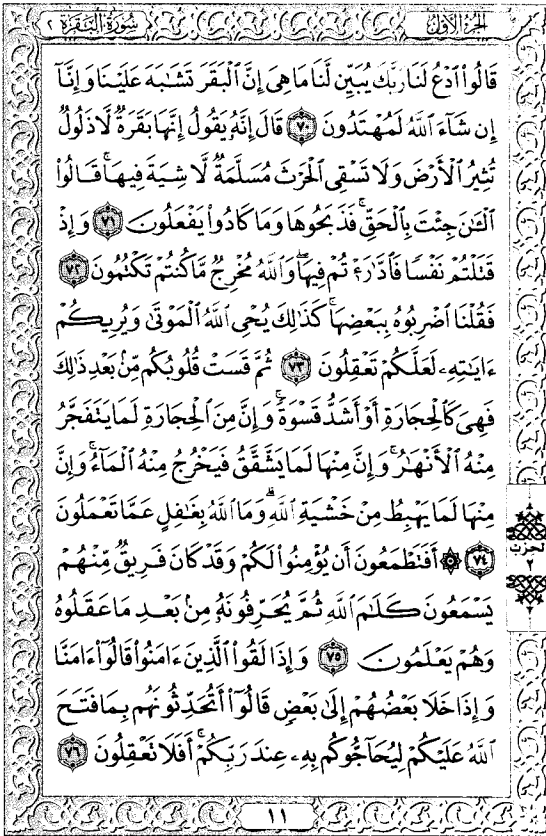 الجزء الأول
سورة البقرة ٢
قَالُوا۟ ٱدْعُ لَنَا رَبَّكَ يُبَيِّن لَّنَا مَا هِىَ إِنَّ ٱلْبَقَرَ تَشَـٰبَهَ عَلَيْنَا وَإِنَّآ
إِن شَآءَ ٱللَّهُ لَمُهْتَدُونَ ٧٠ قَالَ إِنَّهُۥ يَقُولُ إِنَّهَا بَقَرَةٌ لَّا ذَلُولٌ
تُثِيرُ ٱلْأَرْضَ وَلَا تَسْقِى ٱلْحَرْثَ مُسَلَّمَةٌ لَّا شِيَةَ فِيهَا ۚ قَالُوا۟
ٱلْـَٔـٰنَ جِئْتَ بِٱلْحَقِّ ۚ فَذَبَحُوهَا وَمَا كَادُوا۟ يَفْعَلُونَ ٧١ وَإِذْ
قَتَلْتُمْ نَفْسًا فَٱدَّٰرَْٰٔتُمْ فِيهَا ۖ وَٱللَّهُ مُخْرِجٌ مَّا كُنتُمْ تَكْتُمُونَ ٧٢
فَقُلْنَا ٱضْرِبُوهُ بِبَعْضِهَا ۚ كَذَٰلِكَ يُحْىِ ٱللَّهُ ٱلْمَوْتَىٰ وَيُرِيكُمْ
ءَايَـٰتِهِۦ لَعَلَّكُمْ تَعْقِلُونَ ٧٣ ثُمَّ قَسَتْ قُلُوبُكُم مِّنۢ بَعْدِ ذَٰلِكَ
فَهِىَ كَٱلْحِجَارَةِ أَوْ أَشَدُّ قَسْوَةً ۚ وَإِنَّ مِنَ ٱلْحِجَارَةِ لَمَا يَتَفَجَّرُ
مِنْهُ ٱلْأَنْهَـٰرُ ۚ وَإِنَّ مِنْهَا لَمَا يَشَّقَّقُ فَيَخْرُجُ مِنْهُ ٱلْمَآءُ ۚ وَإِنَّ
مِنْهَا لَمَا يَهْبِطُ مِنْ خَشْيَةِ ٱللَّهِ ۗ وَمَا ٱللَّهُ بِغَـٰفِلٍ عَمَّا تَعْمَلُونَ
٧٤ ۞ أَفَتَطْمَعُونَ أَن يُؤْمِنُوا۟ لَكُمْ وَقَدْ كَانَ فَرِيقٌ مِّنْهُمْ
يَسْمَعُونَ كَلَـٰمَ ٱللَّهِ ثُمَّ يُحَرِّفُونَهُۥ مِنۢ بَعْدِ مَا عَقَلُوهُ
وَهُمْ يَعْلَمُونَ ٧٥ وَإِذَا لَقُوا۟ ٱلَّذِينَ ءَامَنُوا۟ قَالُوٓا۟ ءَامَنَّا
وَإِذَا خَلَا بَعْضُهُمْ إِلَىٰ بَعْضٍ قَالُوٓا۟ أَتُحَدِّثُونَهُم بِمَا فَتَحَ
ٱللَّهُ عَلَيْكُمْ لِيُحَآجُّوكُم بِهِۦ عِندَ رَبِّكُمْ ۚ أَفَلَا تَعْقِلُونَ ٧٦
الحزب
٢
١١